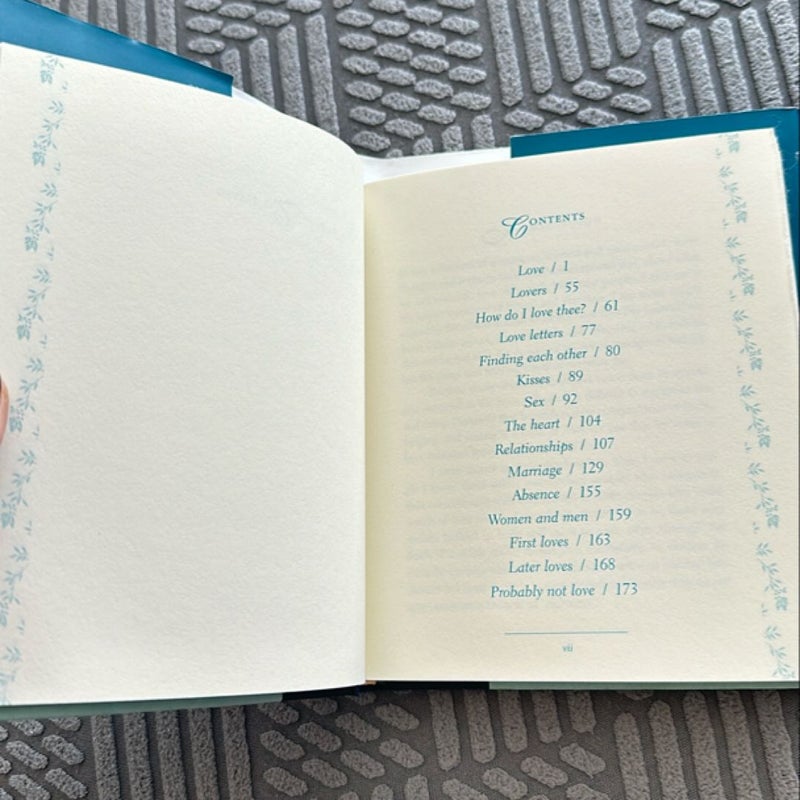 CONTENTS
Love / 1
Lovers / 55
How do I love thee? / 61
Love letters / 77
Finding each other / 80
Kisses / 89
Sex / 92
The heart / 104
Relationships / 107
Marriage / 129
Absence / 155
Women and men / 159
First loves / 163
Later loves / 168
Probably not love / 173
vii